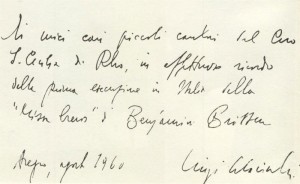 Ai miei cari piccoli cantori del Coro
S. Cecilia di Rho, in affettuoso ricordo
della prima esecuzione in Italia della
"Missa brevis" di Benjamin Britten
Arezzo, agosto 1960 Luigi